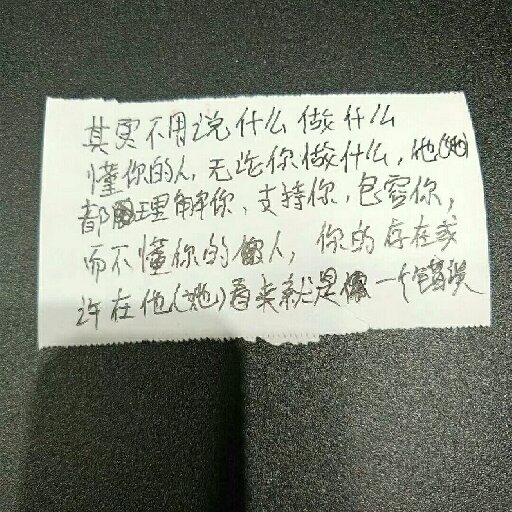 其实不用说什么做什么
懂你的人，无论你做什么，他(她)
都理解你、支持你、包容你，
而不懂你的人，你的存在或
许在他(她)看来就是一个错误